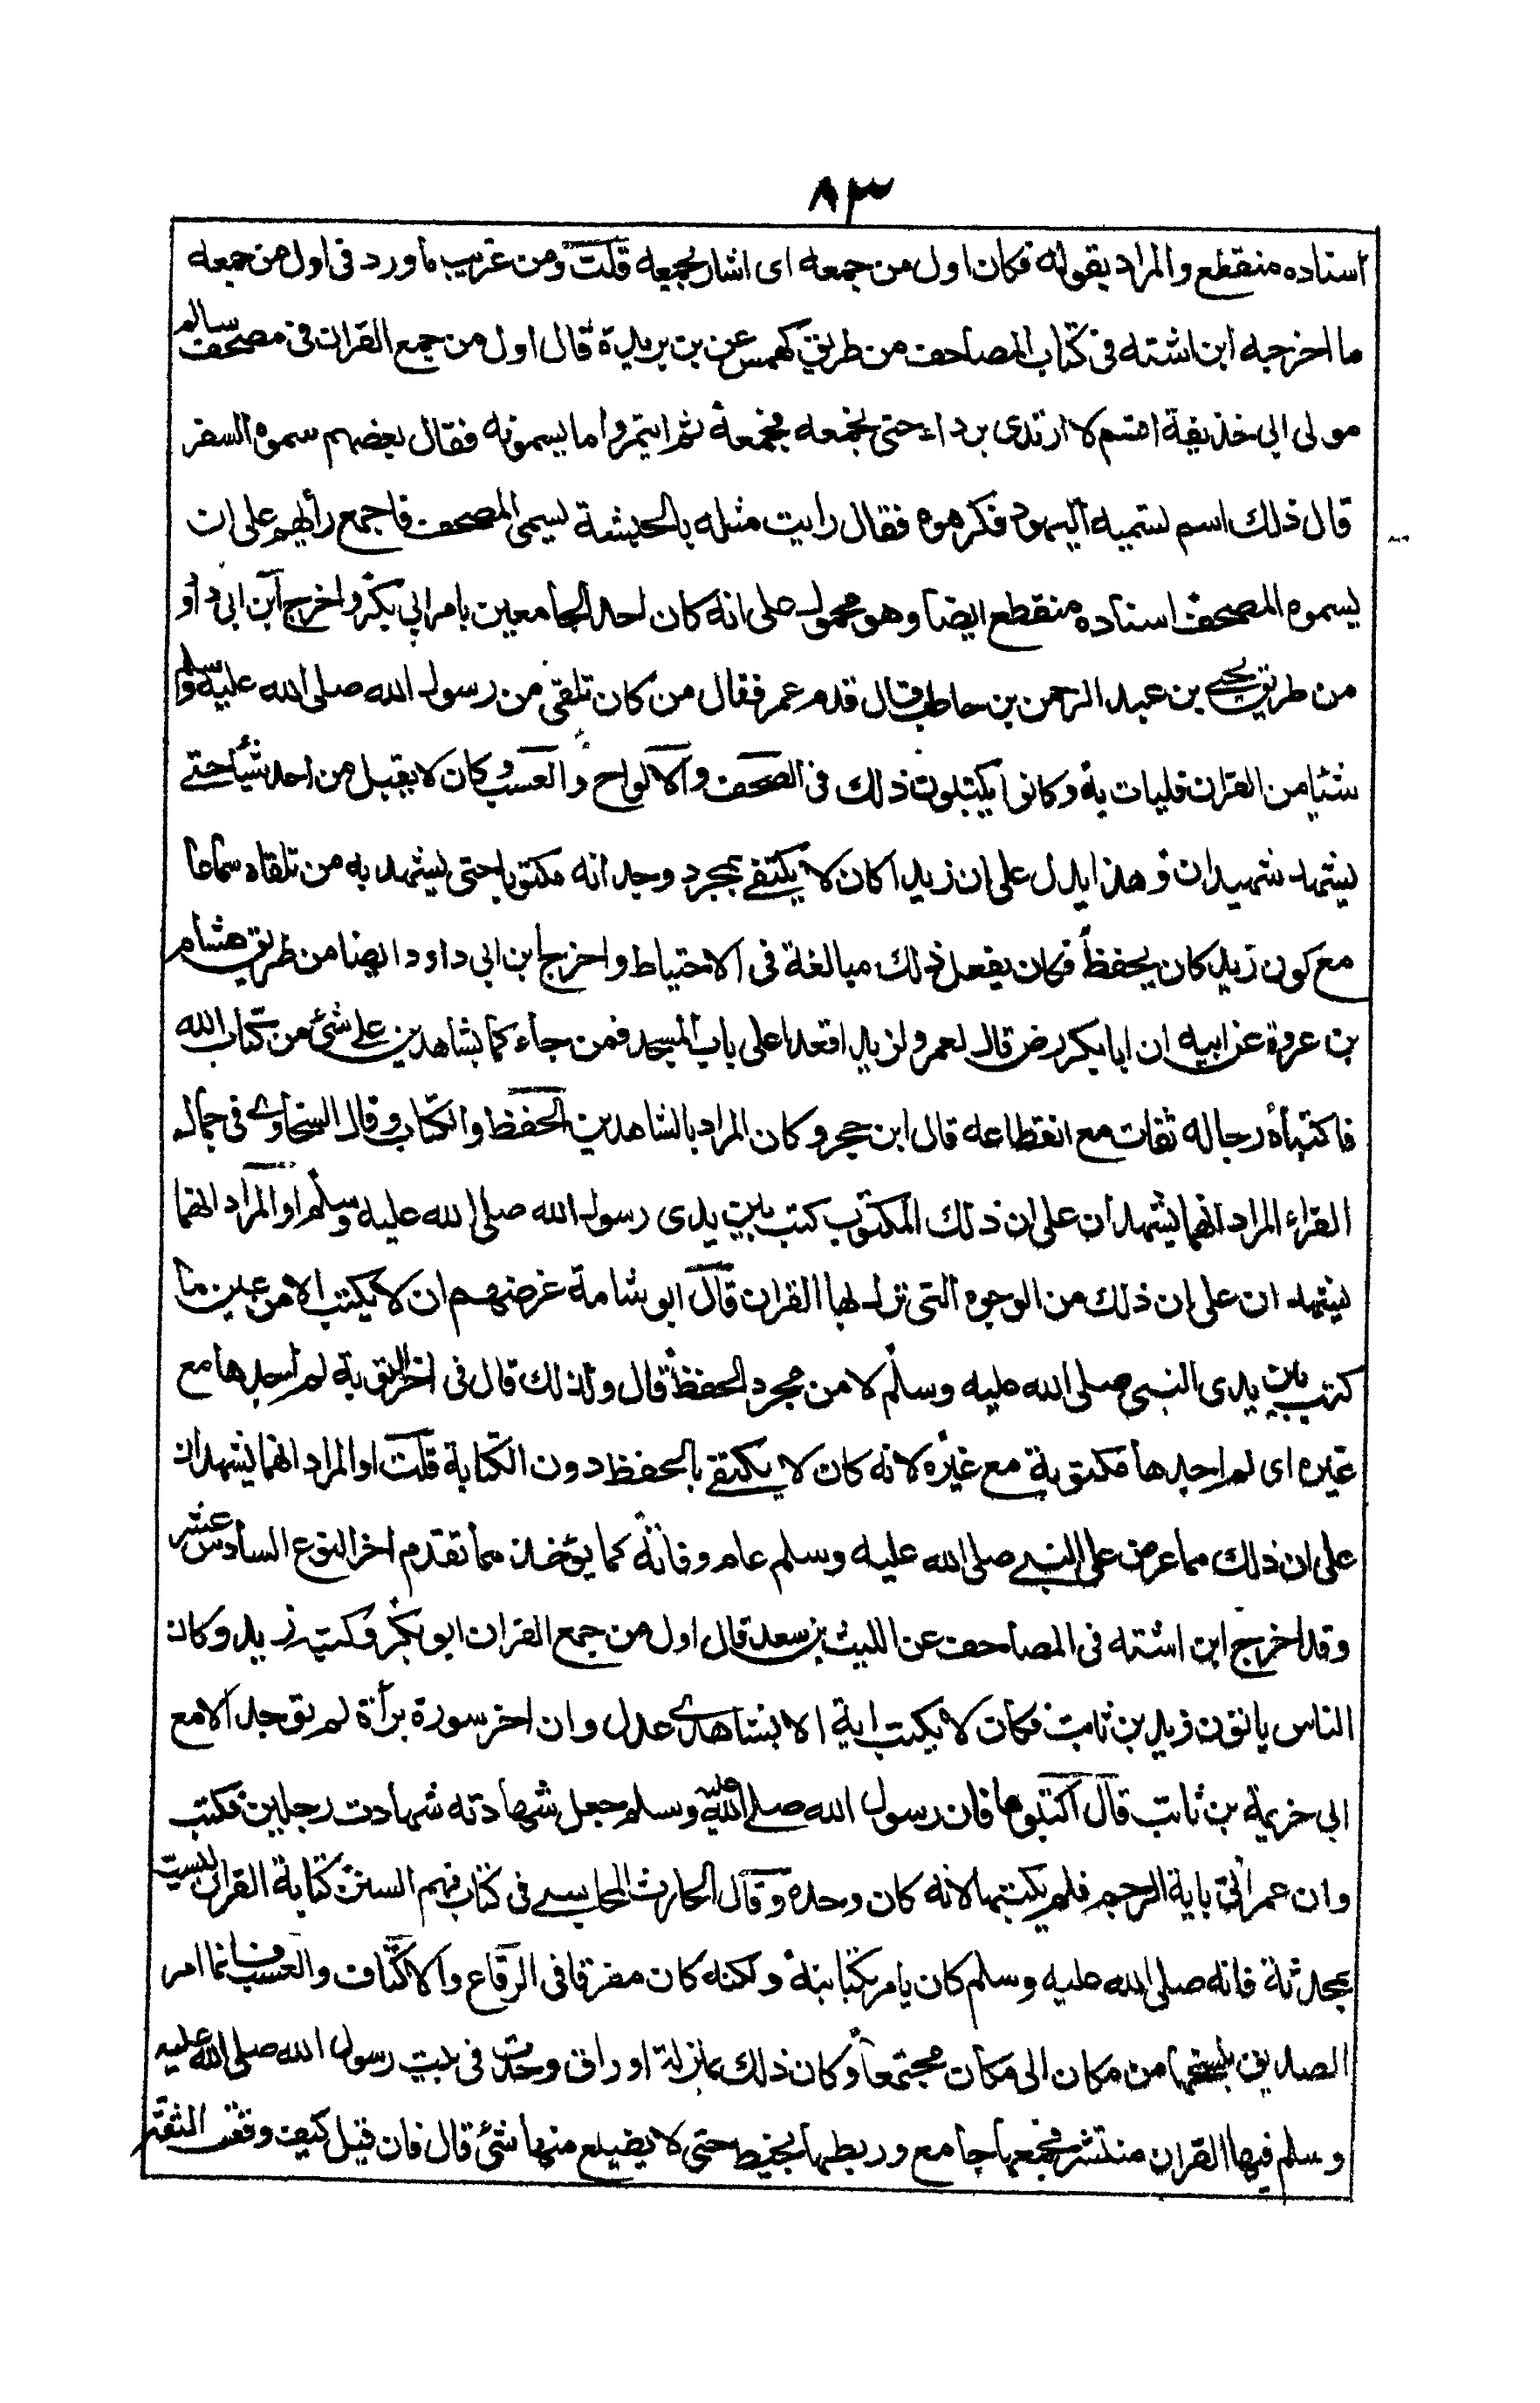 ٨٣
اسناده منقطع والمراد بقوله فكان اول من جمعه اى اشار بجمعه قلت ومن غريب ماورد فى اول من جمعه
ما اخرجه ابن اشته فى كتاب المصاحف من طريق كهمس عن بن بريدة قال اول من جمع القران فى مصحف سالم
مولى ابى حذيفة اقسم لا ارتدى برداء حتى يجمعه فجمعه ثم ايتمروا ما يسمونه فقال بعضهم سموه السفر
قال ذلك اسم تسميه اليهود فكرهوه فقال رايت مثله بالحبشة يسمى المصحف فاجمع رأيهم على ان
يسموه المصحف اسناده منقطع ايضا وهو محمول على انه كان احد الجامعين بامر ابى بكر واخرج ابن ابى داؤ
من طريق يحيى بن عبد الرحمن بن حاطب قال قدم عمر فقال من كان تلقى من رسول الله صلى الله عليه وسلم
شئيا من القران فليات به وكانوا يكتبون ذلك فى الصحف والالواح والعسب وكان لا يقبل من احد شيأ حتى
يشهد شهيدان وهذا يدل على ان زيدا كان لا يكتفى بمجرد وجدانه مكتوبا حتى يشهد به من تلقاه سماعا
مع كون زيد كان يحفظ فكان يفعل ذلك مبالغة فى الاحتياط واخرج ابن ابى داود ايضا من طريق هشام
بن عروة عن ابيه ان ابا بكر رض قال لعمر ولزيد اقعدا على باب المسجد فمن جاء كما بشاهدين على شئ من كتاب الله
فاكتباه رجاله ثقات مع انقطاعه قال ابن حجر وكان المراد بالشاهدين الحفظ والكتاب وقال السخاوى فى جمال
القراء المراد انهما يشهدان على ان ذلك المكتوب كتب بين يدى رسول الله صلى الله عليه وسلم او المراد انهما
يشهدان على ان ذلك من الوجوه التى نزل بها القران قال ابو شامة غرضهم ان لا يكتب الا من عين ما
كتب بين يدى النبى صلى الله عليه وسلم لا من مجرد الحفظ قال ولذلك قال فى اخر التوبة لم اجدها مع
غيره اى لم اجدها مكتوبة مع غيره لانه كان لا يكتفى بالحفظ دون الكتابة قلت او المراد انهما يشهدان
على ان ذلك مما عرض على النبى صلى الله عليه وسلم عام وفاته كما يؤخذ مما تقدم اخر النوع السادس عشر
وقد اخرج ابن اشته فى المصاحف عن الليث بن سعد قال اول من جمع القران ابو بكر وكتبه زيد وكان
الناس ياتون زيد بن ثابت فكان لا يكتب اية الا بشاهدى عدل وان اخر سورة برأة لم توجد الا مع
ابى خزيمة بن ثابت قال اكتبوها فان رسول الله صلى الله عليه وسلم جعل شهادته شهادت رجلين فكتب
وان عمر اتى باية الرجم فلم يكتبها لانه كان وحده وقال الحارث المحاسبى فى كتاب فهم السنن كتابة القران ليست
بمحدثة فانه صلى الله عليه وسلم كان يامر بكتابته ولكنه كان مفرقا فى الرقاع والاكتاف والعسب فانما امر
الصديق بنسخها من مكان الى مكان مجتمعا وكان ذلك بمنزلة اوراق وجدت فى بيت رسول الله صلى الله عليه
وسلم فيها القران منتشر فجمعها جامع وربطها بخيط حتى لا يضيع منها شئ قال فان قيل كيف وقعت الثقة